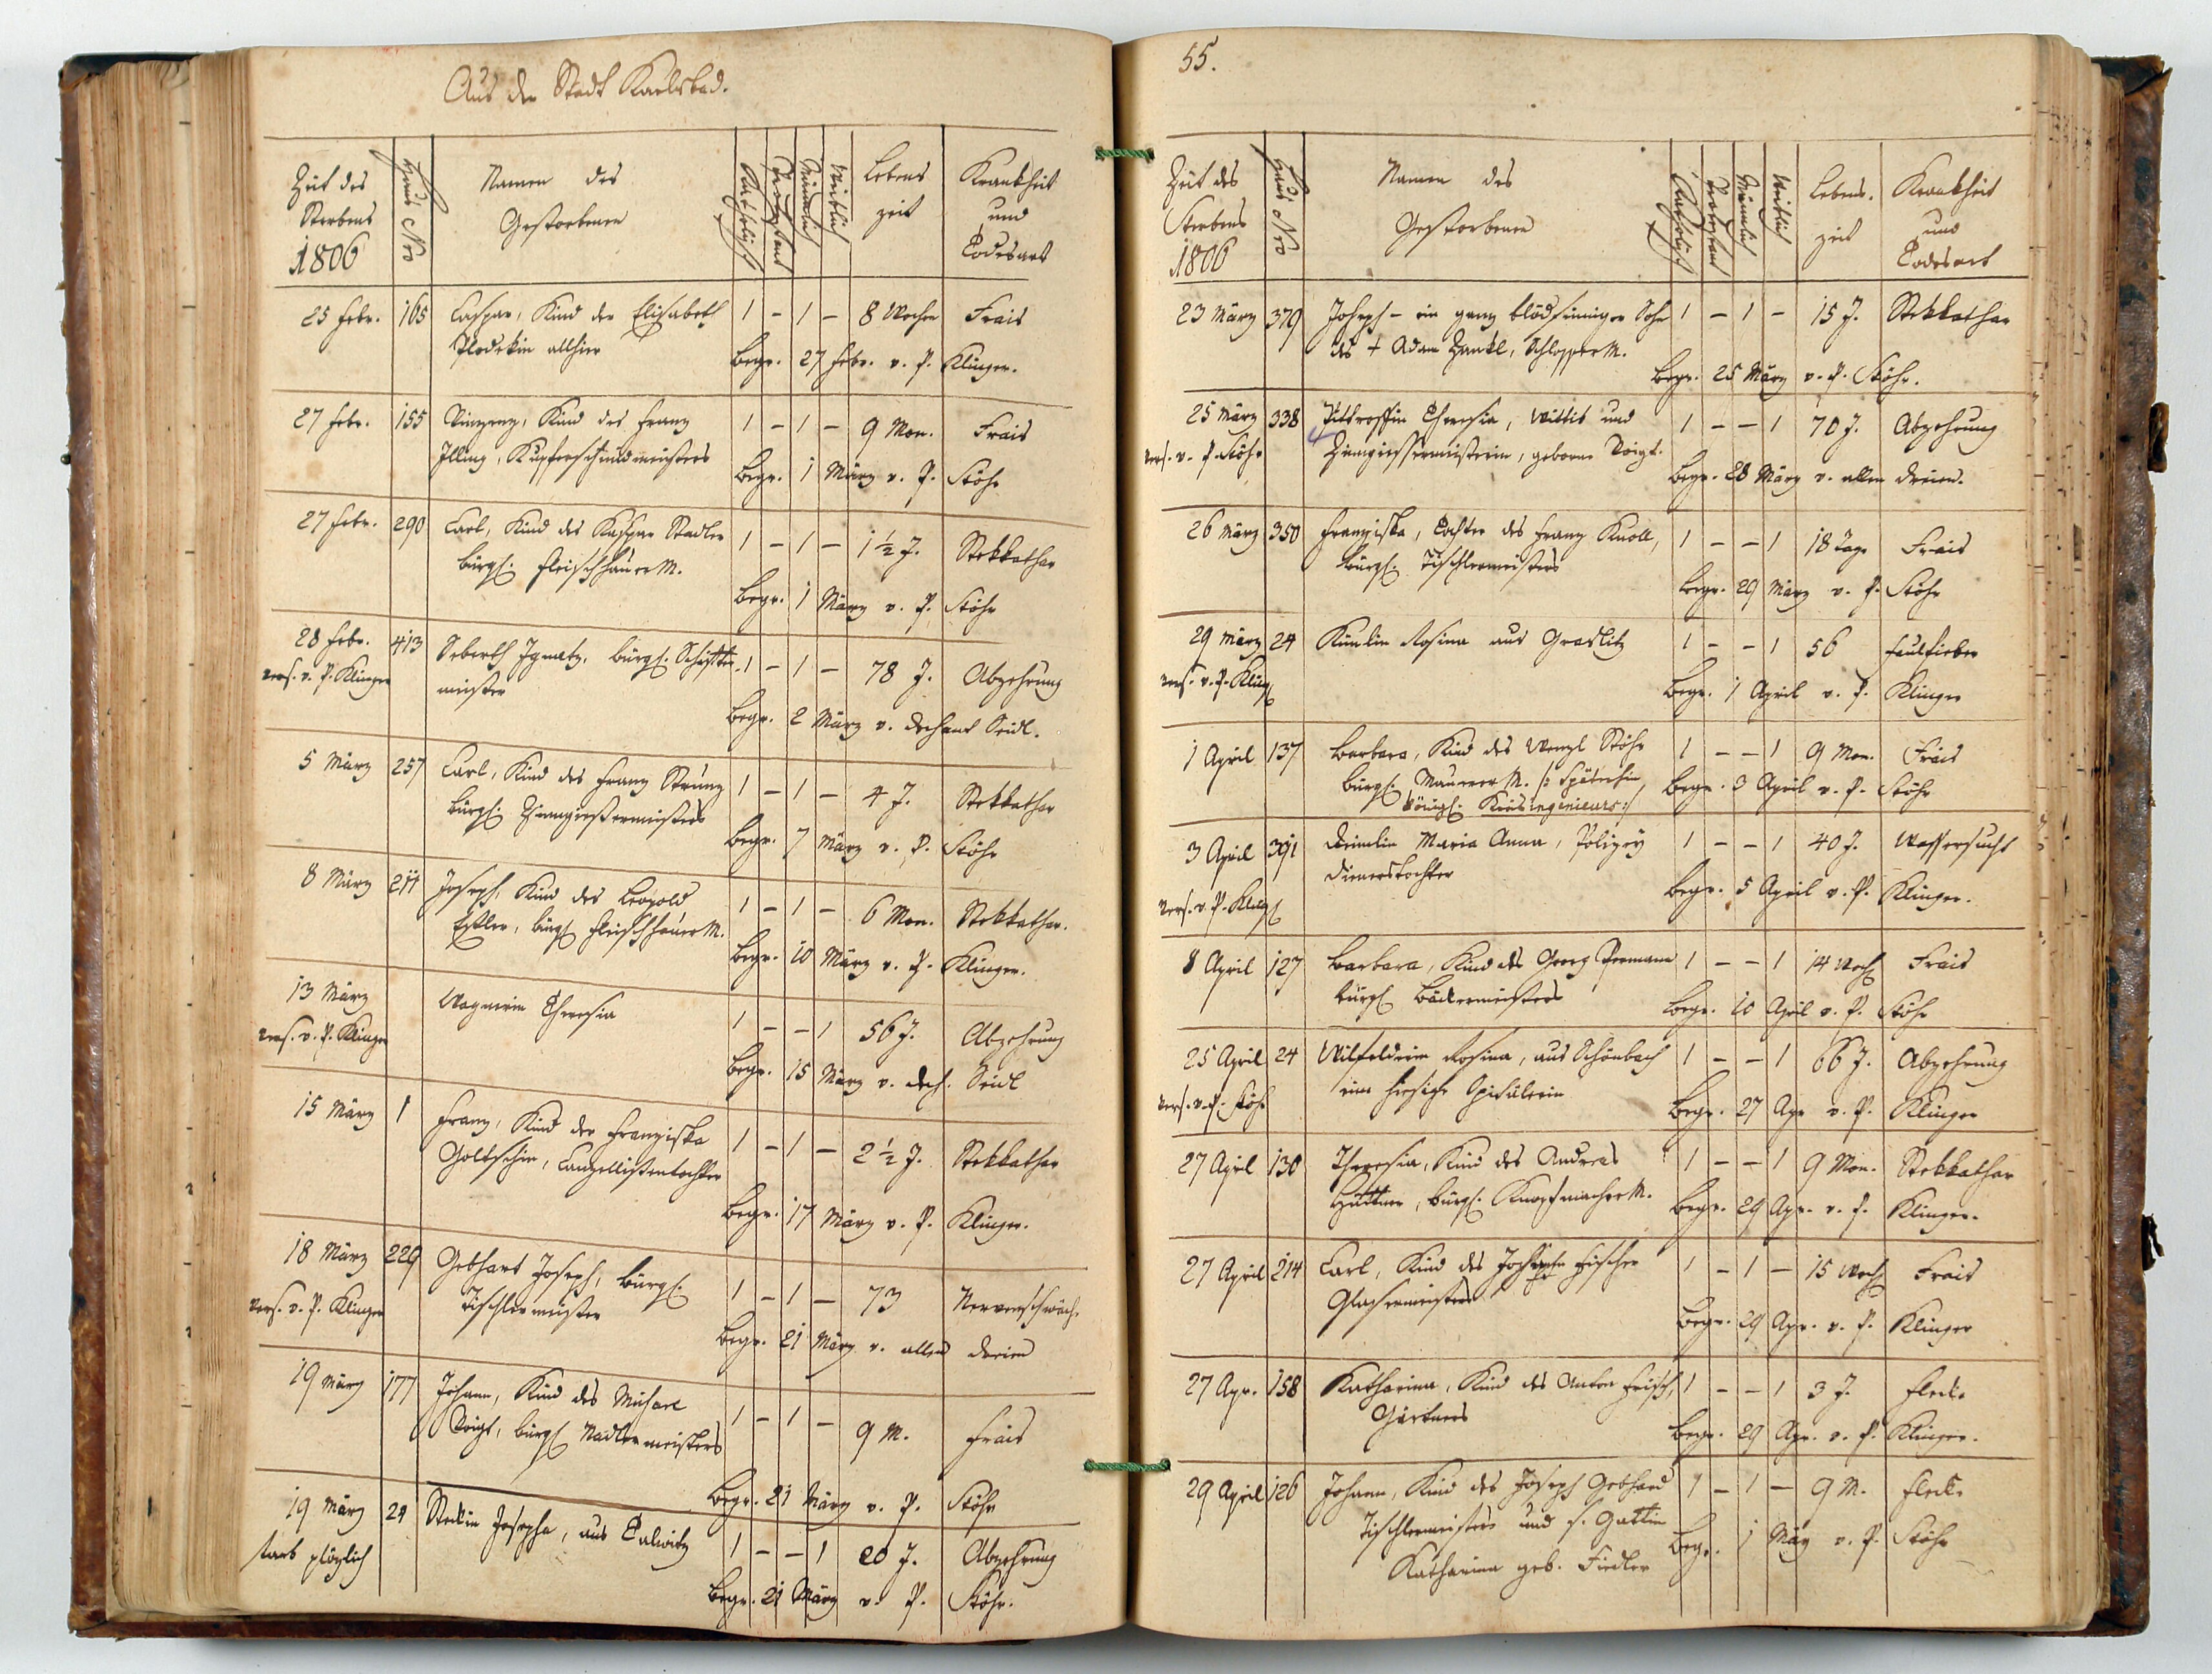 Aus der Stadt Karlsbad.
Zeit des Sterbens 1806 Haus Nro Namen des Gestorbenen Katholisch Protestant Männlich Weiblich Lebens zeit Krankheit und Todesart
25 Febr. 165 Caspar, Kind der Elisabeth 1 - 1 - 8 Wochen Frais
allhier Begr. 27 Febr. v. P. Klinger.
27 Febr. 155 Vinzenz, Kind des Franz 1 - 1 - 9 Mon. Frais
Illing, Kupferschmidmeisters Begr. 1 März v. P. Stöhr
27 Febr. 290 Carl, Kind des Kaspar Stadler 1 - 1 - 1 1/2 J. Stekkathar
bürgl. Fleischhauer M. Begr. 1 März v. P. Stöhr
28 Febr. 413 Seberth Ignatz, bürgl. 1 - 1 - 78 J. Abzehrung
vers. v. P. Klinger meister Begr. 2 März v. Dechant Seidl.
5 März 257 Carl, Kind des Franz Strunz 1 - 1 - 4 J. Stekkathar
bürgl. Zinngießermeisters Begr. 7 März v. P. Stöhr
8 März 211 Joseph, Kind des Leopold 1 - 1 - 6 Mon. Stekkathar.
bürgl Fleischhauer M. Begr. 10 März v. P. Klinger.
13 März Wagnerin Theresia 1 - - 1 56 J. Abzehrung
vers. v. P. Klinger Begr. 15 März v. Dech. Seidl
15 März 1 Franz, Kind der Franziska 1 - 1 - 2 1/2 J. Stekkathar
Goltschin, Canzellistentochter Begr. 17 März v. P. Klinger.
18 März 229 Gebhart Joseph, bürgl. 1 - 1 - 73 Nervenschwäch.
vers. v. P. Klinger Tischlermeister Begr. 21 März v. allen dreien
19 März 177 Johann, Kind des Michael 1 - 1 - 9 M. Frais
Voigt, bürgl Nadlermeisters Begr. 21 März v. P. Stöhr
19 März 24 Josepha, aus 1 - - 1 20 J. Abzehrung
starb plözlich Begr. 21 März v. P. Stöhr.
55.
Zeit des Sterbens 1806 Haus Nro Namen des Gestorbenen Katholisch Protestant Männlich Weiblich Lebens. zeit Krankheit und Todesart
23 März 379 Joseph - ein ganz blödsinniger Sohn 1 - 1 - 15 J. Stekkathar
des + Adam Zankl, Schlosser M. Begr. 25 März v. P. Stöhr.
25 März 338 Theresia, Wittib und 1 - - 1 70 J. Abzehrung
vers. v. P. Stöhr Zinngiessermeisterin, geborne Voigt. Begr. 28 März v. allen dreien.
26 März 350 Franziska, Tochter des Franz Knoll, 1 - - 1 18 Tage Frais
bürgl. Tischlermeisters Begr. 29 März v. P. Stöhr
29 März 24 Rosina aus Graslitz 1 - - 1 56 Faulfieber
vers. v. P. Kling Begr. 1 April v. P. Klinger
1 April 137 Barbara, Kind des Wenzl Stöhr 1 - - 1 9 Mon. Frais
bürgl. Maurer M. /: Späterhin Begr. 3 April v. P. Stöhr
königl. Kreisingenieurs :/
3 April 391 Maria Anna, Polizey 1 - - 1 40 J. Wassersucht
dienerstochter Begr. 5 April v. P. Klinger.
vers. v. P. Kling
8 April 127 Barbara, Kind des Georg 1 - - 1 14 Woch Frais
bürgl Bäckermeisters Begr. 10 April v. P. Stöhr
25 April 24 Rosina, aus Schönbach 1 - - 1 66 J. Abzehrung
vers. v. P. Stöhr eine hiesige Spitälerin Begr. 27 Apr v. P. Klinger
27 April 130 Theresia, Kind des Andreas 1 - - 1 9 Mon. Stekkathar
Hüttner, bürgl. Knopfmacher M. Begr. 29 Apr. v. P. Klinger.
27 April 214 Carl, Kind des Fischer 1 - 1 - 15 Woch Frais
Glasermeisters Begr. 29 Apr. v. P. Klinger
27 Apr. 158 Katharina, Kind des Anton Frisch, 1 - - 1 3 J. Flecke
Gärtners Begr. 29 Apr. v. P. Klinger.
29 April 126 Johann, Kind des Joseph Gebhard 1 - 1 - 9 M. Flecke
Tischlermeisters und s. Gattin Begr. 1 May v. P. Stöhr
Katharina geb. Fiedler